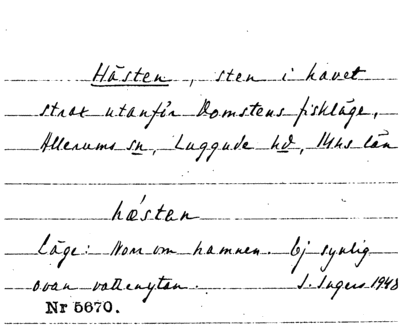 Hästen, sten i havet
strax utanför Domstens fiskläge,
Allerums sn, Luggude hd, Mhs län
hæ´stan
Läge: Norr om hamnen. Ej synlig
ovan vattenytan. I. Ingers 1948
Nr 5670.